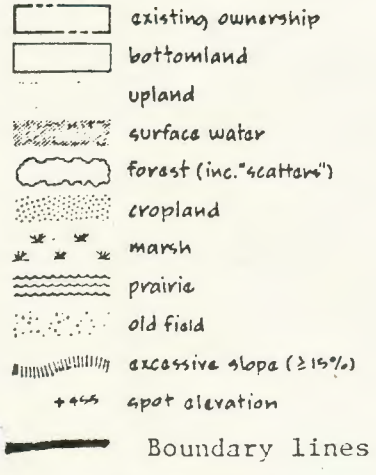 existing ownership
bottomland
upland
surface water
forest (inc. "scatters")
cropland
marsh
prairie
old field
excessive slope (≥15%)
+455 spot elevation
Boundary lines